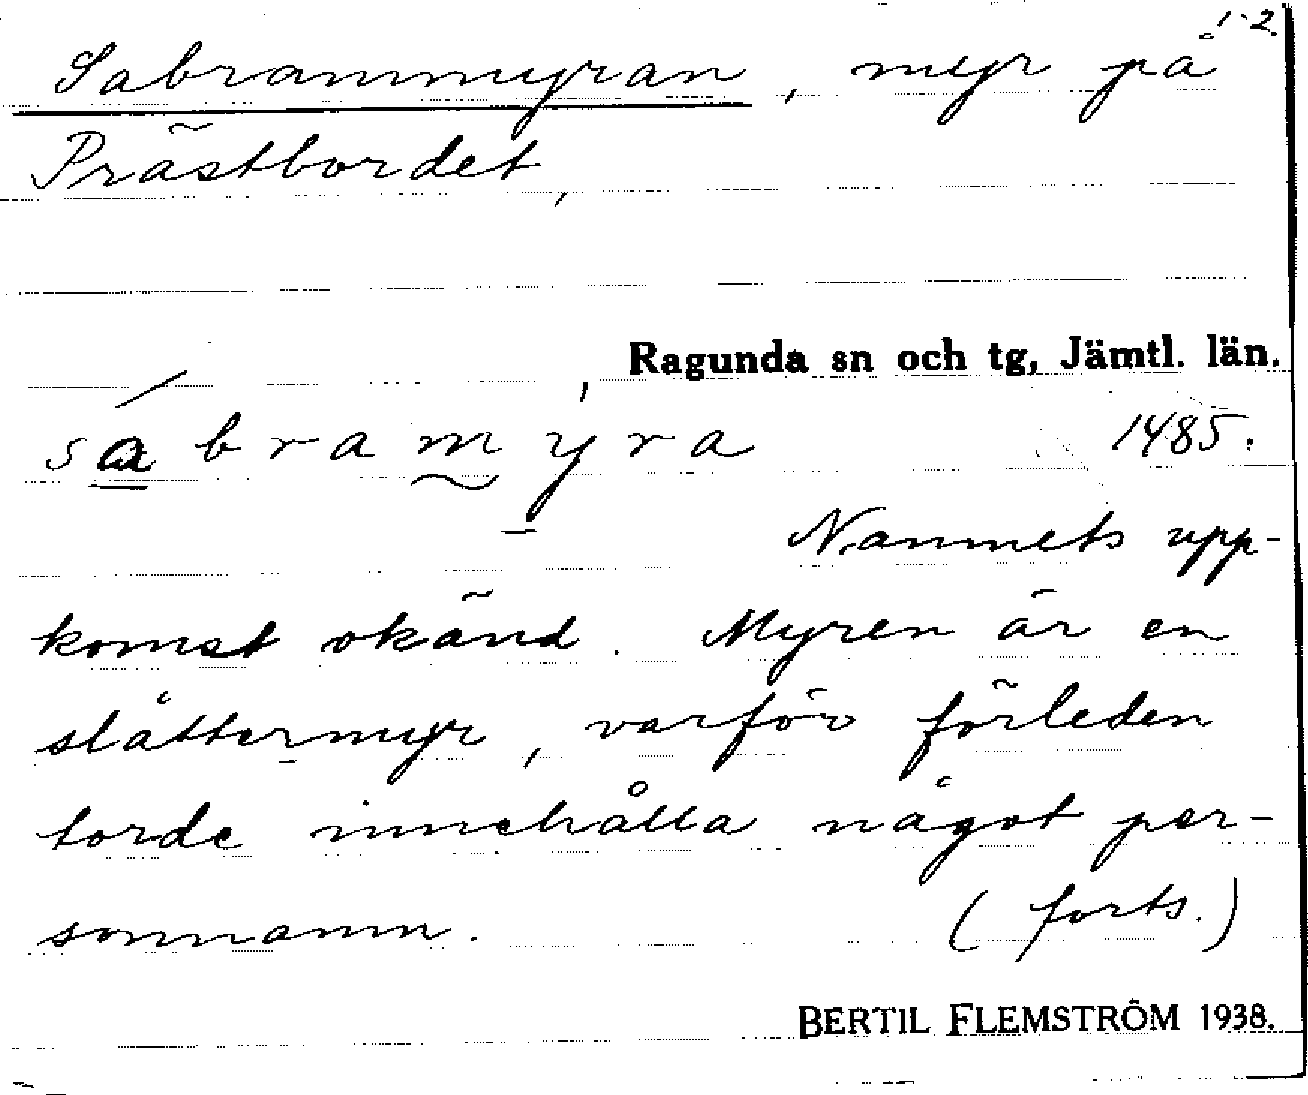 1-2.
Sabrammyran, myr på
Prästbordet,
Ragunda sn och tg, Jämtl. län.
sabramyra 1485.
Namnets upp-
komst okänd. Myren är en
slåttermyr, varför förleden
torde innehålla något per-
sonnamn. (forts.)
BERTIL FLEMSTRÖM 1938.